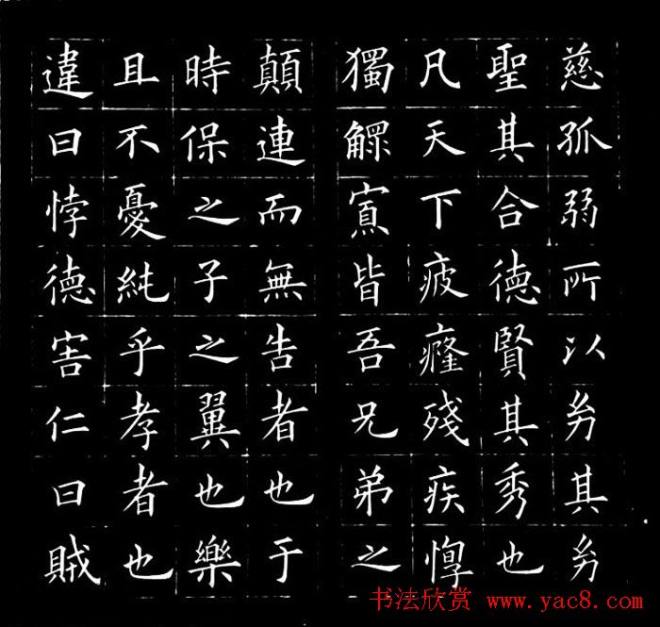 慈孤弱所以幼其幼
聖其合德賢其秀也
凡天下疲癃殘疾惸
獨鰥寡皆吾兄弟之
顛連而無告者也于
時保之子之翼也樂
且不憂純乎孝者也
違曰悖德害仁曰賊
书法欣赏 www.yac8.com